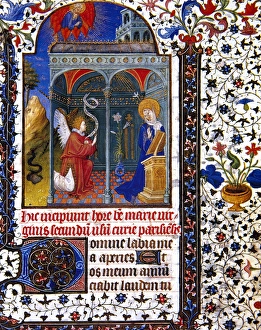 Hic incipiunt hore be marie vir
ginis secundū usū curie parisiesis
Domine labia me
a aperies. Et
os meum annū
ciabit laudem tu